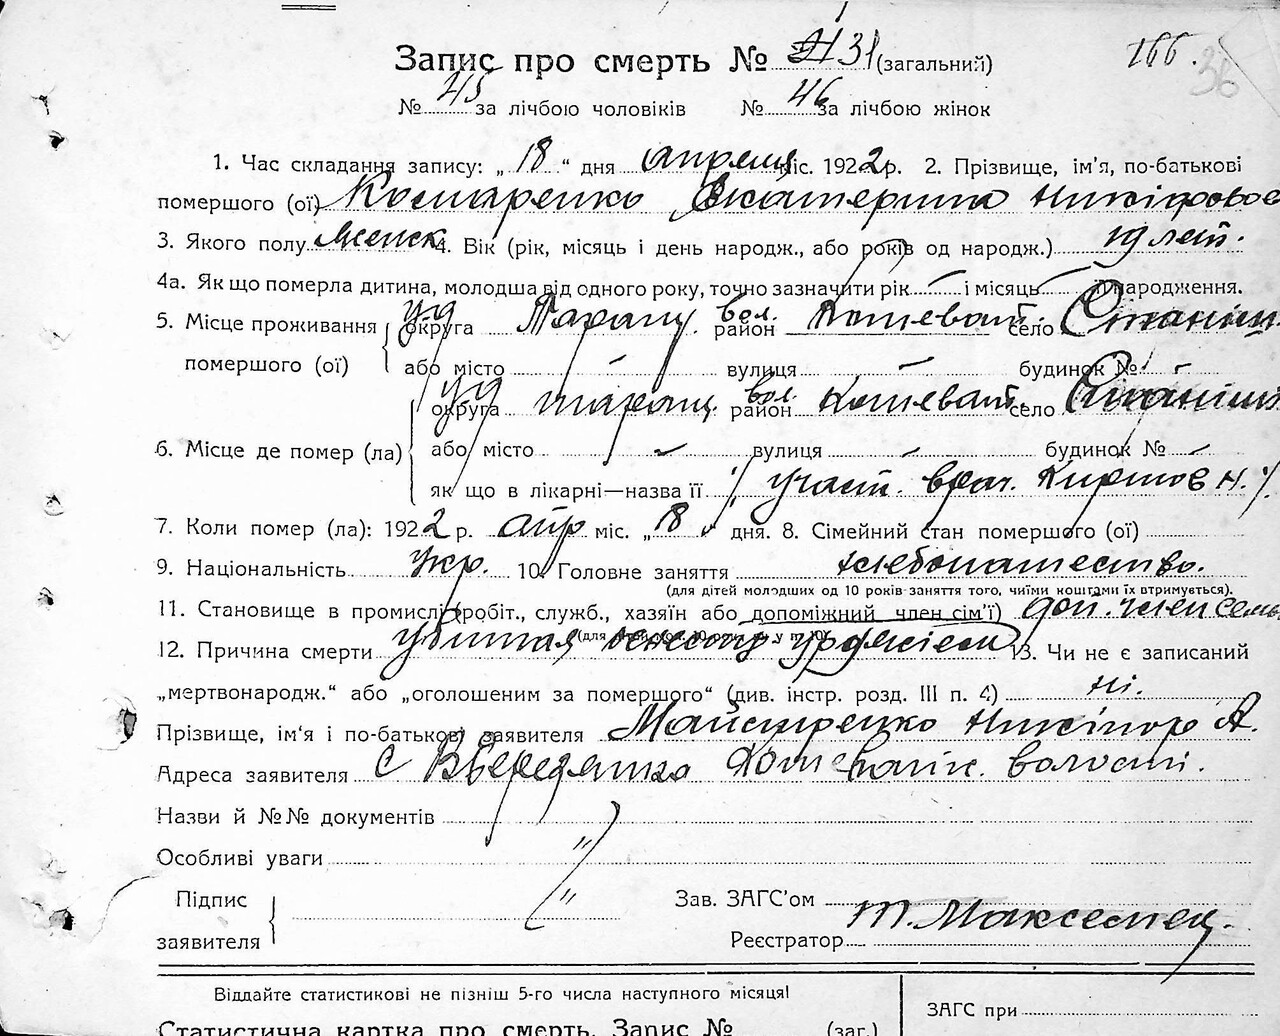 Запис про смерть № 31 (загальний)
166.
36
№ 45 за лічбою чоловіків № 46 за лічбою жінок
1. Час складання запису: „ 18 “ дня апреля міс. 1922 р. 2. Прізвище, ім'я, по-батькові
помершого (ої) Комаренко Екатерина
3. Якого полу Женск 4. Вік (рік, місяць і день народж., або років од народж.) лет.
4а. Як що померла дитина, молодша від одного року, точно зазначити рік і місяць народження.
5. Місце проживання округа Таращ. вол. район село
помершого (ої) або місто вулиця будинок №
округа таращ. вол. район село
6. Місце де помер (ла) або місто вулиця будинок №
як що в лікарні—назва її участ. врач.
7. Коли помер (ла): 1922 р. апр міс. „ 18 дня. 8. Сімейний стан помершого (ої)
9. Національність укр. 10. Головне заняття хлебопашество.
(для дітей молодших од 10 років-заняття того, чиїми коштами їх втримується).
11. Становище в промислі (робіт., служб., хазяїн або допоміжний член сім'ї) доп. член семь
12. Причина смерти убитая 13. Чи не є записаний
„мертвонародж.“ або „оголошеним за помершого“ (див. інстр. розд. III п. 4) ні.
Прізвище, ім'я і по-батькові заявителя Майстренко Никіпор А.
Адреса заявителя с волості.
Назви й №№ документів
Особливі уваги
Підпис Зав. ЗАГС'ом
заявителя Реєстратор
Віддайте статистикові не пізніш 5-го числа наступного місяця!
ЗАГС при
Статистична картка про смерть. Запис № (заг.)